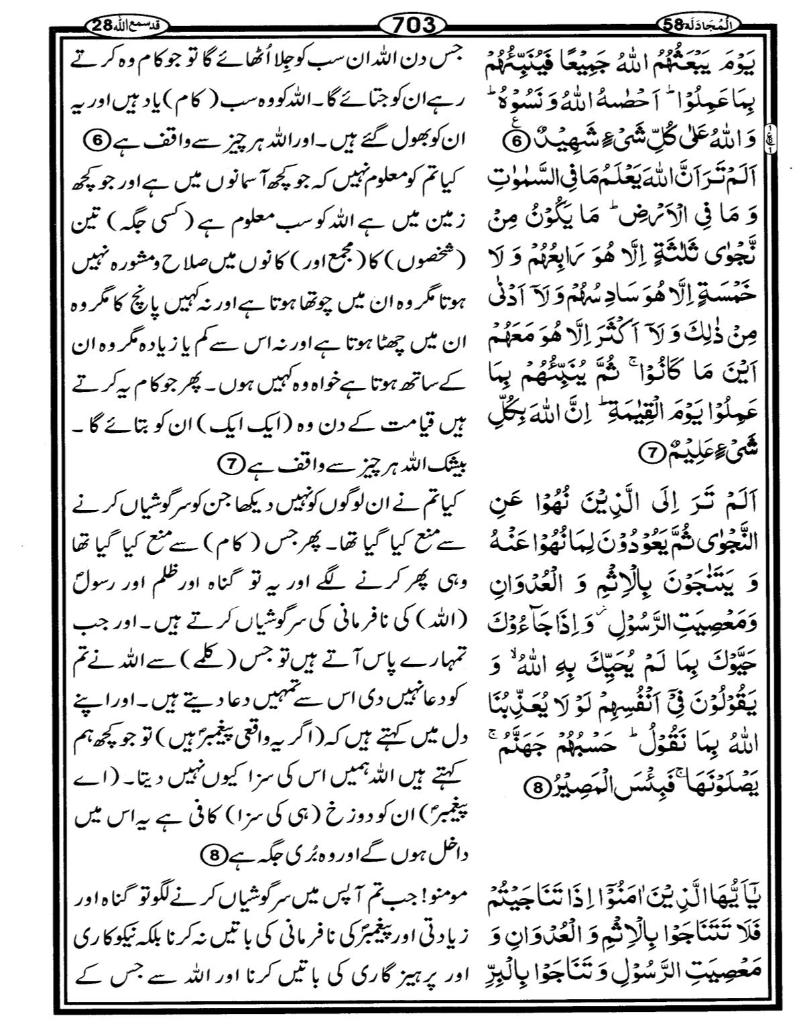 اَلْمُجَادَلَة 58
703
قد سمع الله 28
يَوْمَ يَبْعَثُهُمُ اللّٰهُ جَمِيْعًا فَيُنَبِّئُهُمْ
بِمَا عَمِلُوْا ؕ اَحْصٰىهُ اللّٰهُ وَ نَسُوْهُ ؕ
وَ اللّٰهُ عَلٰى كُلِّ شَیْءٍ شَهِيْدٌ ﴿6﴾ ع
اَلَمْ تَرَ اَنَّ اللّٰهَ يَعْلَمُ مَا فِی السَّمٰوٰتِ
وَ مَا فِی الْاَرْضِ ؕ مَا يَكُوْنُ مِنْ
نَّجْوٰى ثَلٰثَةٍ اِلَّا هُوَ رَابِعُهُمْ وَ لَا
خَمْسَةٍ اِلَّا هُوَ سَادِسُهُمْ وَ لَاۤ اَدْنٰى
مِنْ ذٰلِكَ وَ لَاۤ اَكْثَرَ اِلَّا هُوَ مَعَهُمْ
اَيْنَ مَا كَانُوْا ۚ ثُمَّ يُنَبِّئُهُمْ بِمَا
عَمِلُوْا يَوْمَ الْقِيٰمَةِ ؕ اِنَّ اللّٰهَ بِكُلِّ
شَیْءٍ عَلِيْمٌ ﴿7﴾
اَلَمْ تَرَ اِلَى الَّذِيْنَ نُهُوْا عَنِ
النَّجْوٰى ثُمَّ يَعُوْدُوْنَ لِمَا نُهُوْا عَنْهُ
وَ يَتَنٰجَوْنَ بِالْاِثْمِ وَ الْعُدْوَانِ
وَ مَعْصِيَتِ الرَّسُوْلِ ؗ وَ اِذَا جَآءُوْكَ
حَيَّوْكَ بِمَا لَمْ يُحَيِّكَ بِهِ اللّٰهُ ۙ وَ
يَقُوْلُوْنَ فِیْۤ اَنْفُسِهِمْ لَوْ لَا يُعَذِّبُنَا
اللّٰهُ بِمَا نَقُوْلُ ؕ حَسْبُهُمْ جَهَنَّمُ ۚ
يَصْلَوْنَهَا ۚ فَبِئْسَ الْمَصِيْرُ ﴿8﴾
يٰۤاَيُّهَا الَّذِيْنَ اٰمَنُوْۤا اِذَا تَنَاجَيْتُمْ
فَلَا تَتَنَاجَوْا بِالْاِثْمِ وَ الْعُدْوَانِ وَ
مَعْصِيَتِ الرَّسُوْلِ وَ تَنَاجَوْا بِالْبِرِّ
جس دن اللہ ان سب کو جِلا اُٹھائے گا تو جو کام وہ کرتے
رہے ان کو جتائے گا۔ اللہ کو وہ سب (کام) یاد ہیں اور یہ
ان کو بھول گئے ہیں۔ اور اللہ ہر چیز سے واقف ہے ﴿6﴾
کیا تم کو معلوم نہیں کہ جو کچھ آسمانوں میں ہے اور جو کچھ
زمین میں ہے اللہ کو سب معلوم ہے (کسی جگہ) تین
(شخصوں) کا (مجمع اور) کانوں میں صلاح و مشورہ نہیں
ہوتا مگر وہ ان میں چوتھا ہوتا ہے اور نہ کہیں پانچ کا مگر وہ
ان میں چھٹا ہوتا ہے اور نہ اس سے کم یا زیادہ مگر وہ ان
کے ساتھ ہوتا ہے خواہ وہ کہیں ہوں۔ پھر جو کام یہ کرتے
ہیں قیامت کے دن وہ (ایک ایک) ان کو بتائے گا۔
بیشک اللہ ہر چیز سے واقف ہے ﴿7﴾
کیا تم نے ان لوگوں کو نہیں دیکھا جن کو سرگوشیاں کرنے
سے منع کیا گیا تھا۔ پھر جس (کام) سے منع کیا گیا تھا
وہی پھر کرنے لگے اور یہ تو گناہ اور ظلم اور رسولؐ
(اللہ) کی نافرمانی کی سرگوشیاں کرتے ہیں۔ اور جب
تمہارے پاس آتے ہیں تو جس (کلمے) سے اللہ نے تم
کو دعا نہیں دی اس سے تمہیں دعا دیتے ہیں۔ اور اپنے
دل میں کہتے ہیں کہ (اگر یہ واقعی پیغمبرؐ ہیں) تو جو کچھ ہم
کہتے ہیں اللہ ہمیں اس کی سزا کیوں نہیں دیتا۔ (اے
پیغمبرؐ) ان کو دوزخ (ہی کی سزا) کافی ہے یہ اس میں
داخل ہوں گے اور وہ بُری جگہ ہے ﴿8﴾
مومنو! جب تم آپس میں سرگوشیاں کرنے لگو تو گناہ اور
زیادتی اور پیغمبرؐ کی نافرمانی کی باتیں نہ کرنا بلکہ نیکوکاری
اور پرہیز گاری کی باتیں کرنا اور اللہ سے جس کے